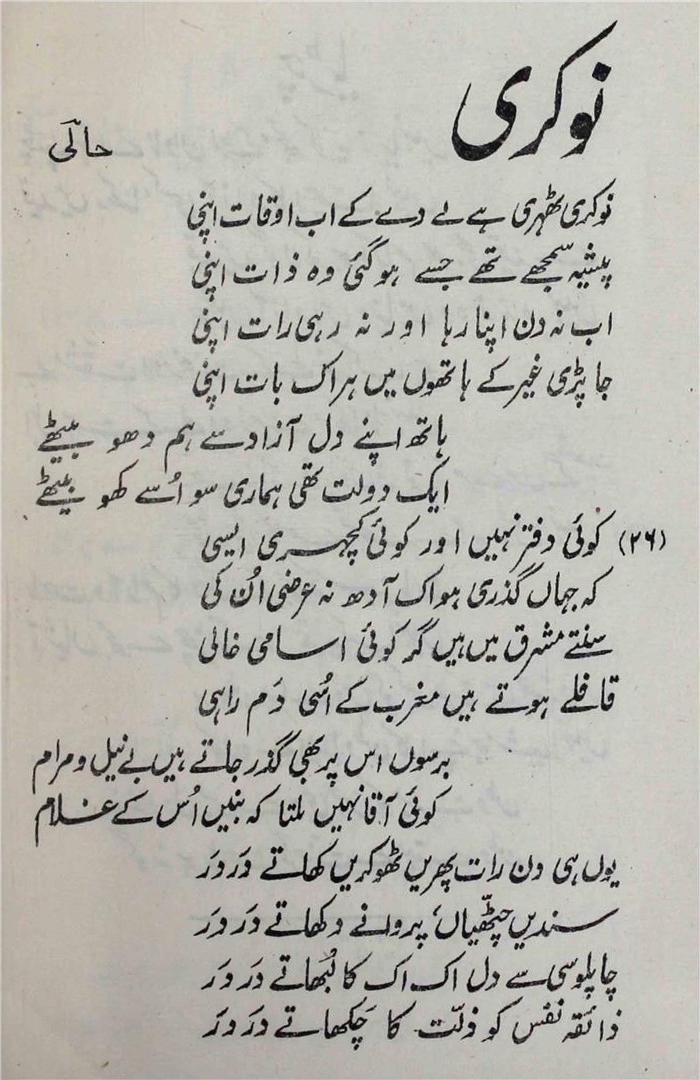 نوکری
حالی
نوکری ٹھہری ہے لے دے کے اب اوقات اپنی
پیشیہ سمجھے تھے جسے ہوگئی وہ ذات اپنی
اب نہ دن اپنا رہا اور نہ رہی رات اپنی
جا پڑی غیر کے ہاتھوں میں ہر اک بات اپنی
ہاتھ اپنے دل آزاد سے ہم دھو بیٹھے
ایک دولت تھی ہماری سو اُسے کھو بیٹھے
(۲۶) کوئی دفتر نہیں اور کوئی کچہری ایسی
کہ جہاں گذری ہو اک آدھ نہ عرضی اُن کی
سنتے مشرق میں ہیں گر کوئی اسامی خالی
قافلے ہوتے ہیں مغرب کے اُسی دَم راہی
برسوں اس پر بھی گذر جاتے ہیں بے نیل و مرام
کوئی آقا نہیں ملتا کہ بنیں اُس کے غلام
یوں ہی دن رات پھریں ٹھوکریں کھاتے دَر دَر
سندیں چٹھّیاں، پروانے دکھاتے دَر دَر
چاپلوسی سے دل اک اک کا لُبھاتے دَر دَر
ذائقہ نفس کو ذلّت کا چَکھاتے دَر دَر